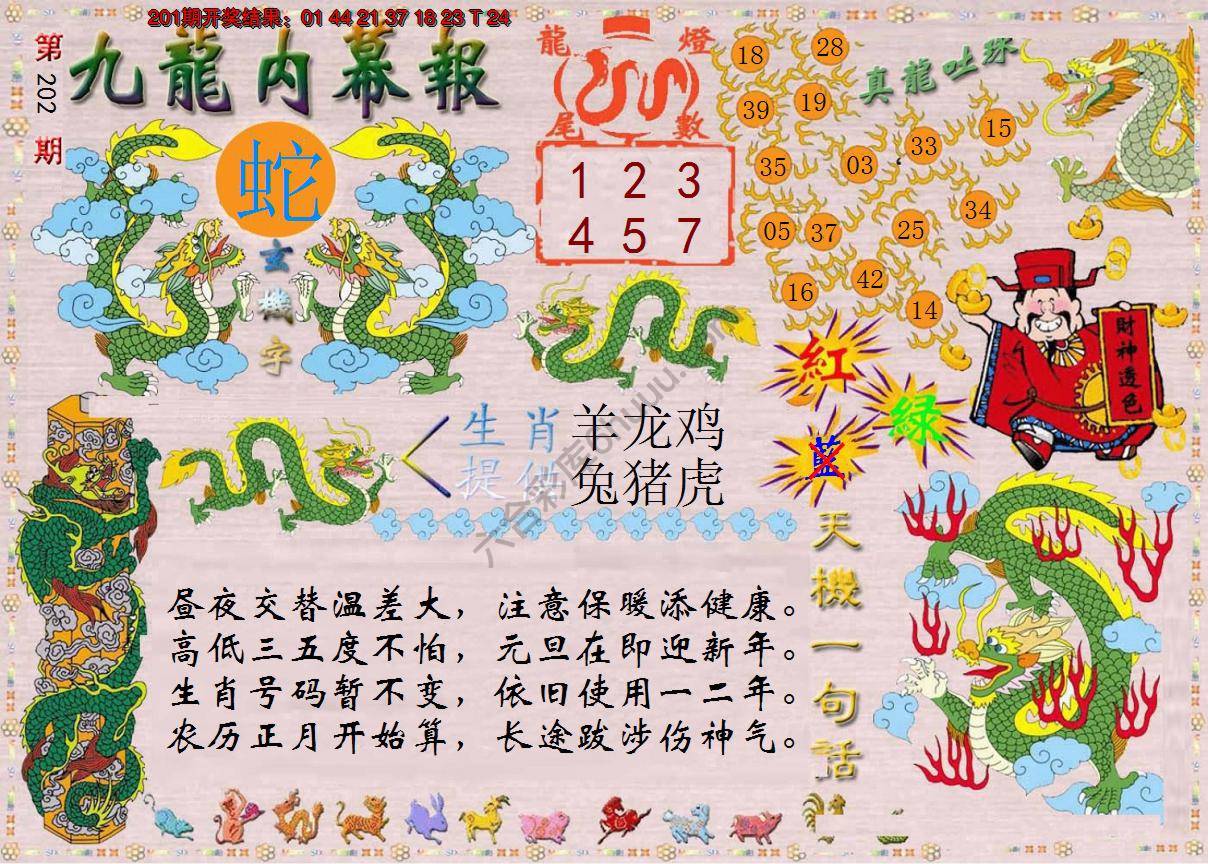 201期开奖结果：01 44 21 37 18 23 T 24
第202期
九龍内幕報
蛇
玄機字
龍燈
尾數
1 2 3
4 5 7
真龍吐珠
18 28
39 19
35 03 33 15
05 37 25 34
16 42 14
財神透色
紅
綠
藍
生肖
提供
羊龙鸡
兔猪虎
天機一句話
昼夜交替温差大，注意保暖添健康。
高低三五度不怕，元旦在即迎新年。
生肖号码暂不变，依旧使用一二年。
农历正月开始算，长途跋涉伤神气。